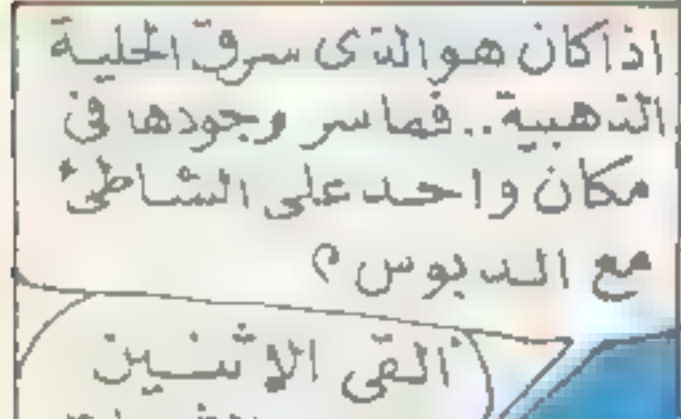 اذا كان هو الذى سرق الحلية
الذهبية.. فما سر وجودها فى
مكان واحد على الشاطئ
مع الدبوس ؟
القى الاثنين